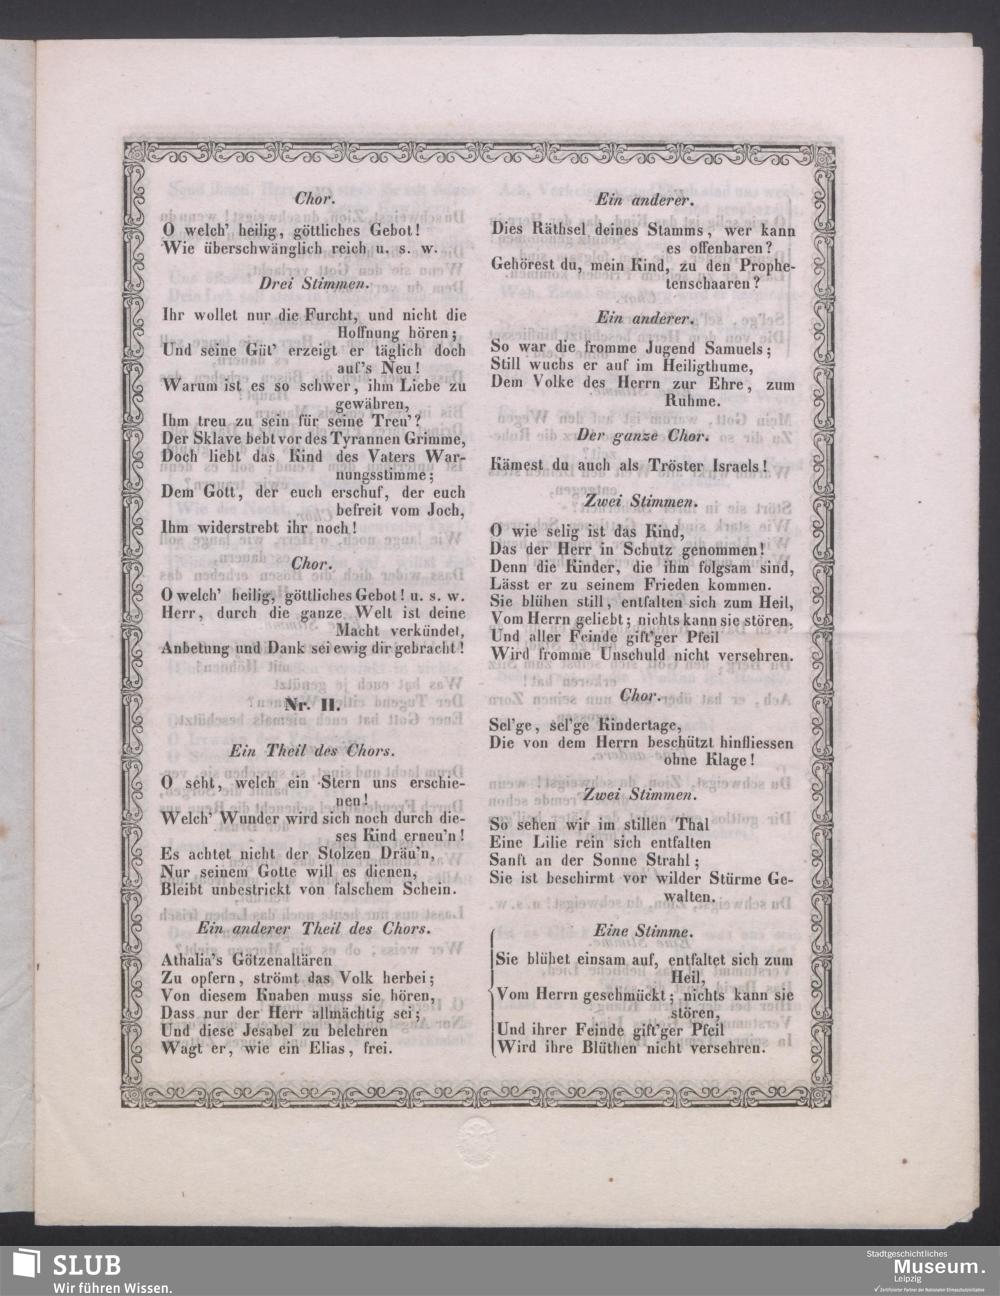 Chor.
O welch' heilig, göttliches Gebot!
Wie überschwänglich reich u. s. w.
Drei Stimmen.
Ihr wollet nur die Furcht, und nicht die
Hoffnung hören;
Und seine Güt' erzeigt er täglich doch
auf's Neu!
Warum ist es so schwer, ihm Liebe zu
gewähren,
Ihm treu zu sein für seine Treu'?
Der Sklave bebt vor des Tyrannen Grimme,
Doch liebt das Kind des Vaters War-
nungsstimme;
Dem Gott, der euch erschuf, der euch
befreit vom Joch,
Ihm widerstrebt ihr noch!
Chor.
O welch' heilig, göttliches Gebot! u. s. w.
Herr, durch die ganze Welt ist deine
Macht verkündet,
Anbetung und Dank sei ewig dir gebracht!
Nr. II.
Ein Theil des Chors.
O seht, welch ein Stern uns erschie-
nen!
Welch' Wunder wird sich noch durch die-
ses Kind erneu'n!
Es achtet nicht der Stolzen Dräu'n,
Nur seinem Gotte will es dienen,
Bleibt unbestrickt von falschem Schein.
Ein anderer Theil des Chors.
Athalia's Götzenaltären
Zu opfern, strömt das Volk herbei;
Von diesem Knaben muss sie hören,
Dass nur der Herr allmächtig sei;
Und diese Jesabel zu belehren
Wagt er, wie ein Elias, frei.
Ein anderer.
Dies Räthsel deines Stamms, wer kann
es offenbaren?
Gehörest du, mein Kind, zu den Prophe-
tenschaaren?
Ein anderer.
So war die fromme Jugend Samuels;
Still wuchs er auf im Heiligthume,
Dem Volke des Herrn zur Ehre, zum
Ruhme.
Der ganze Chor.
Kämest du auch als Tröster Israels!
Zwei Stimmen.
O wie selig ist das Kind,
Das der Herr in Schutz genommen!
Denn die Kinder, die ihm folgsam sind,
Lässt er zu seinem Frieden kommen.
Sie blühen still, entfalten sich zum Heil,
Vom Herrn geliebt; nichts kann sie stören,
Und aller Feinde gift'ger Pfeil
Wird fromme Unschuld nicht versehren.
Chor.
Sel'ge, sel'ge Kindertage,
Die von dem Herrn beschützt hinfliessen
ohne Klage!
Zwei Stimmen.
So sehen wir im stillen Thal
Eine Lilie rein sich entfalten
Sanft an der Sonne Strahl;
Sie ist beschirmt vor wilder Stürme Ge-
walten.
Eine Stimme.
Sie blühet einsam auf, entfaltet sich zum
Heil,
Vom Herrn geschmückt; nichts kann sie
stören,
Und ihrer Feinde gift'ger Pfeil
Wird ihre Blüthen nicht versehren.
SLUB
Wir führen Wissen.
Stadtgeschichtliches
Museum.
Leipzig
Zertifizierter Partner der Nationalen Klimaschutzinitiative